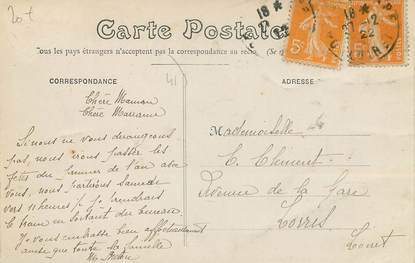 20+
Carte Postale
Tous les pays étrangers n'acceptent pas la correspondance au recto. (Se
CORRESPONDANCE
41
ADRESSE
Chère Maman
Chère Marraine
Si nous ne vous dérangeons
pas, nous irons passer les
fêtes du premier de l'an avec
vous, nous partirons Samedi
vers 11 heures je prendrais
le train en sortant du bureau
Je vous embrasse bien affectueusement
ainsi que toute la famille
Mademoiselle
E. Clément
Avenue de la Gare
Lorris
Loiret
18 *
12
22
5c
18 *
12
22
5c